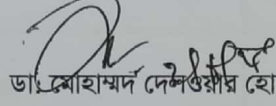 ডাঃ মোহাম্মদ দেলওয়ার হো